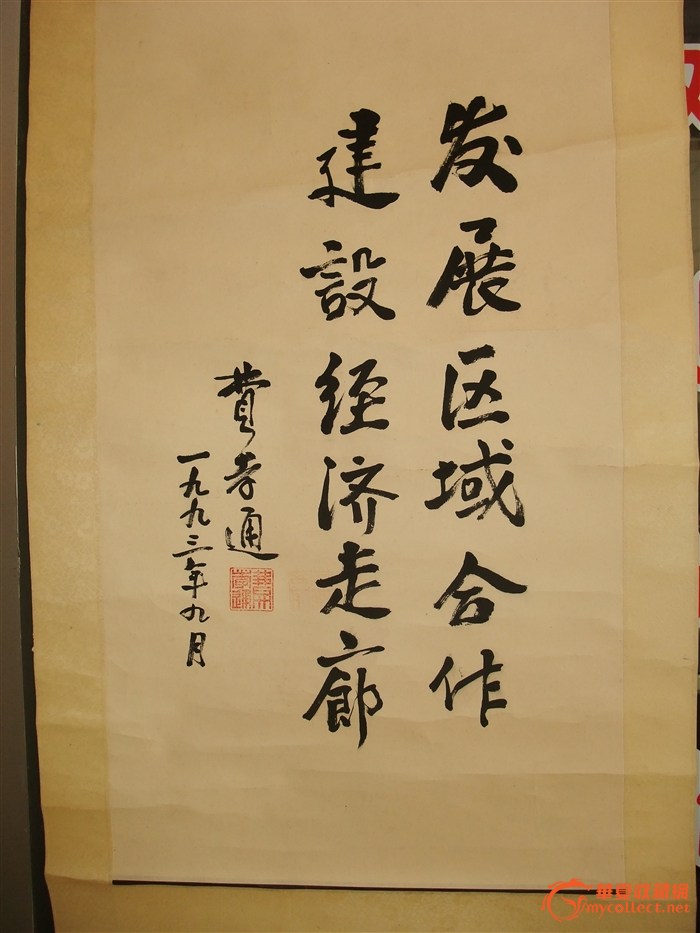 发展区域合作
建設经济走廊
費孝通
一九九三年九月
mycollect.net